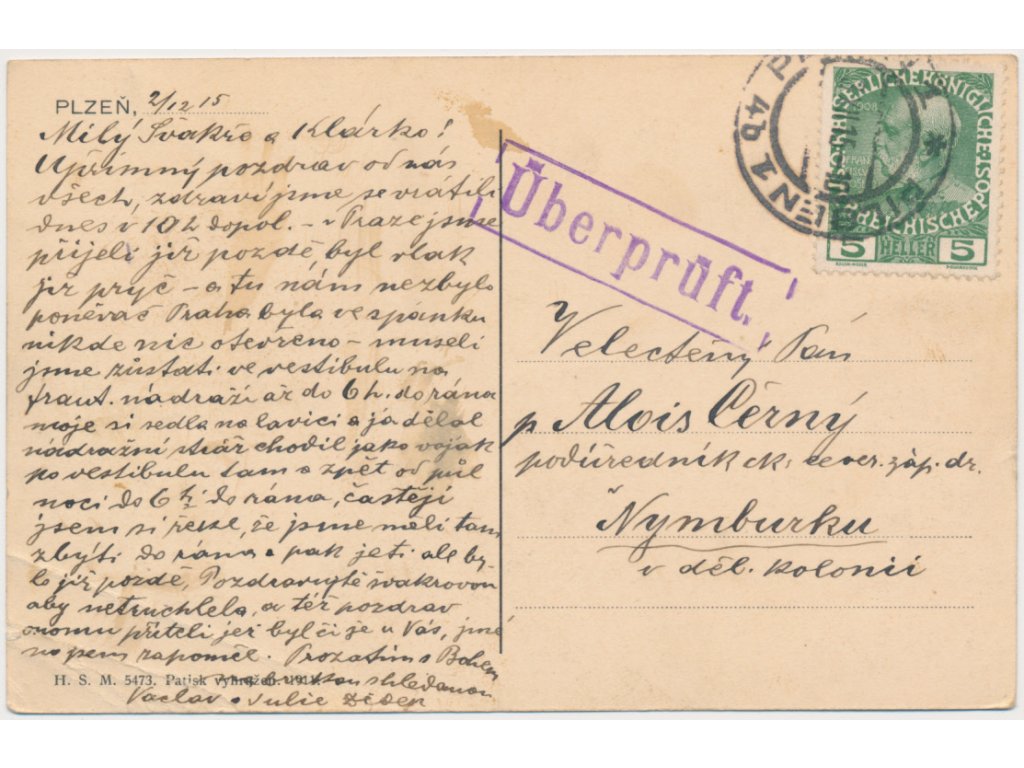 PLZEŇ, 2/12 15
Milý Švakře a Klárko!
Upřímný pozdrav od nás
všech, zdraví jsme se vrátili
dnes v 10 h dopol. – v Praze jsme
přijeli již pozdě, byl vlak
již pryč – a tu nám nezbylo
poněvač Praha byla ve spánku
nikde nic otevřeno – museli
jsme zůstati ve vestibulu na
frant. nádraží až do 6 h. do rána
moje si sedla na lavici a já dělal
nádražní stráž chodil jako voják
po vestibulu tam a zpět od půl
noci do 6 h do rána, častěji
jsem si řekl, že jsme měli tam
zbýti do rána a pak jeti ale by-
lo již pozdě, Pozdravujtě švakrovou
aby netruchlela, a též pozdrav
onomu příteli jež byl či je u Vás, jmé
no jsem zapoměl. Prozatím s Bohem
na shledanou
Václav a Julie
H. S. M. 5473. Patisk vyhražen.
PILSEN 1
4b
KAISERLICHE KÖNIGLICHE
ÖSTERREICHISCHE POST
1908
5 HELLER 5
Überprüft.
Velectěný Pán
p Alois Černý
podúředník ck. sever. záp. dr.
Nymburku
v děl. kolonii